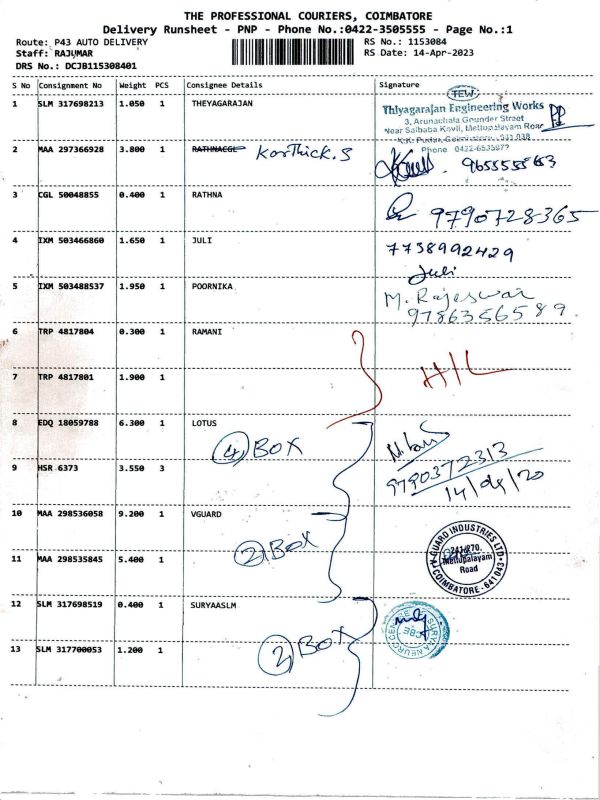 THE PROFESSIONAL COURIERS, COIMBATORE
Delivery Runsheet - PNP - Phone No.:0422-3505555 - Page No.:1
Route: P43 AUTO DELIVERY
RS No.: 1153084
Staff: RAJUMAR
RS Date: 14-Apr-2023
DRS No.: DCJB115308401
S No Consignment No Weight PCS Consignee Details Signature
1 SLM 317698213 1.050 1 THEYAGARAJAN
TEW
Thiyagarajan Engineering Works
3, Arunachala Grounder Street
Near Saibaba Kovil, Mettupalayam Road
Phone 0422-653597?
2 MAA 297366928 3.800 1 Karthick.S
9655555863
3 CGL 50048855 0.400 1 RATHNA
9790728365
4 IXM 503466860 1.650 1 JULI
7758992429
Juli
5 IXM 503488537 1.950 1 POORNIKA
M. Rajeswar
9786356589
6 TRP 4817804 0.300 1 RAMANI
7 TRP 4817801 1.900 1
H/L
8 EDQ 18059788 6.300 1 LOTUS
4 BOX
9 HSR 6373 3.550 3
9790372313
14/04/20
10 MAA 298536058 9.200 1 VGUARD
2 BOX
V-GUARD INDUSTRIES LTD
241/270,
Mettupalayam
Road
COIMBATORE - 641 043
11 MAA 298535845 5.400 1
12 SLM 317698519 0.400 1 SURYAASLM
SURYA NEURO CENTRE
CBE
2 BOX
13 SLM 317700053 1.200 1